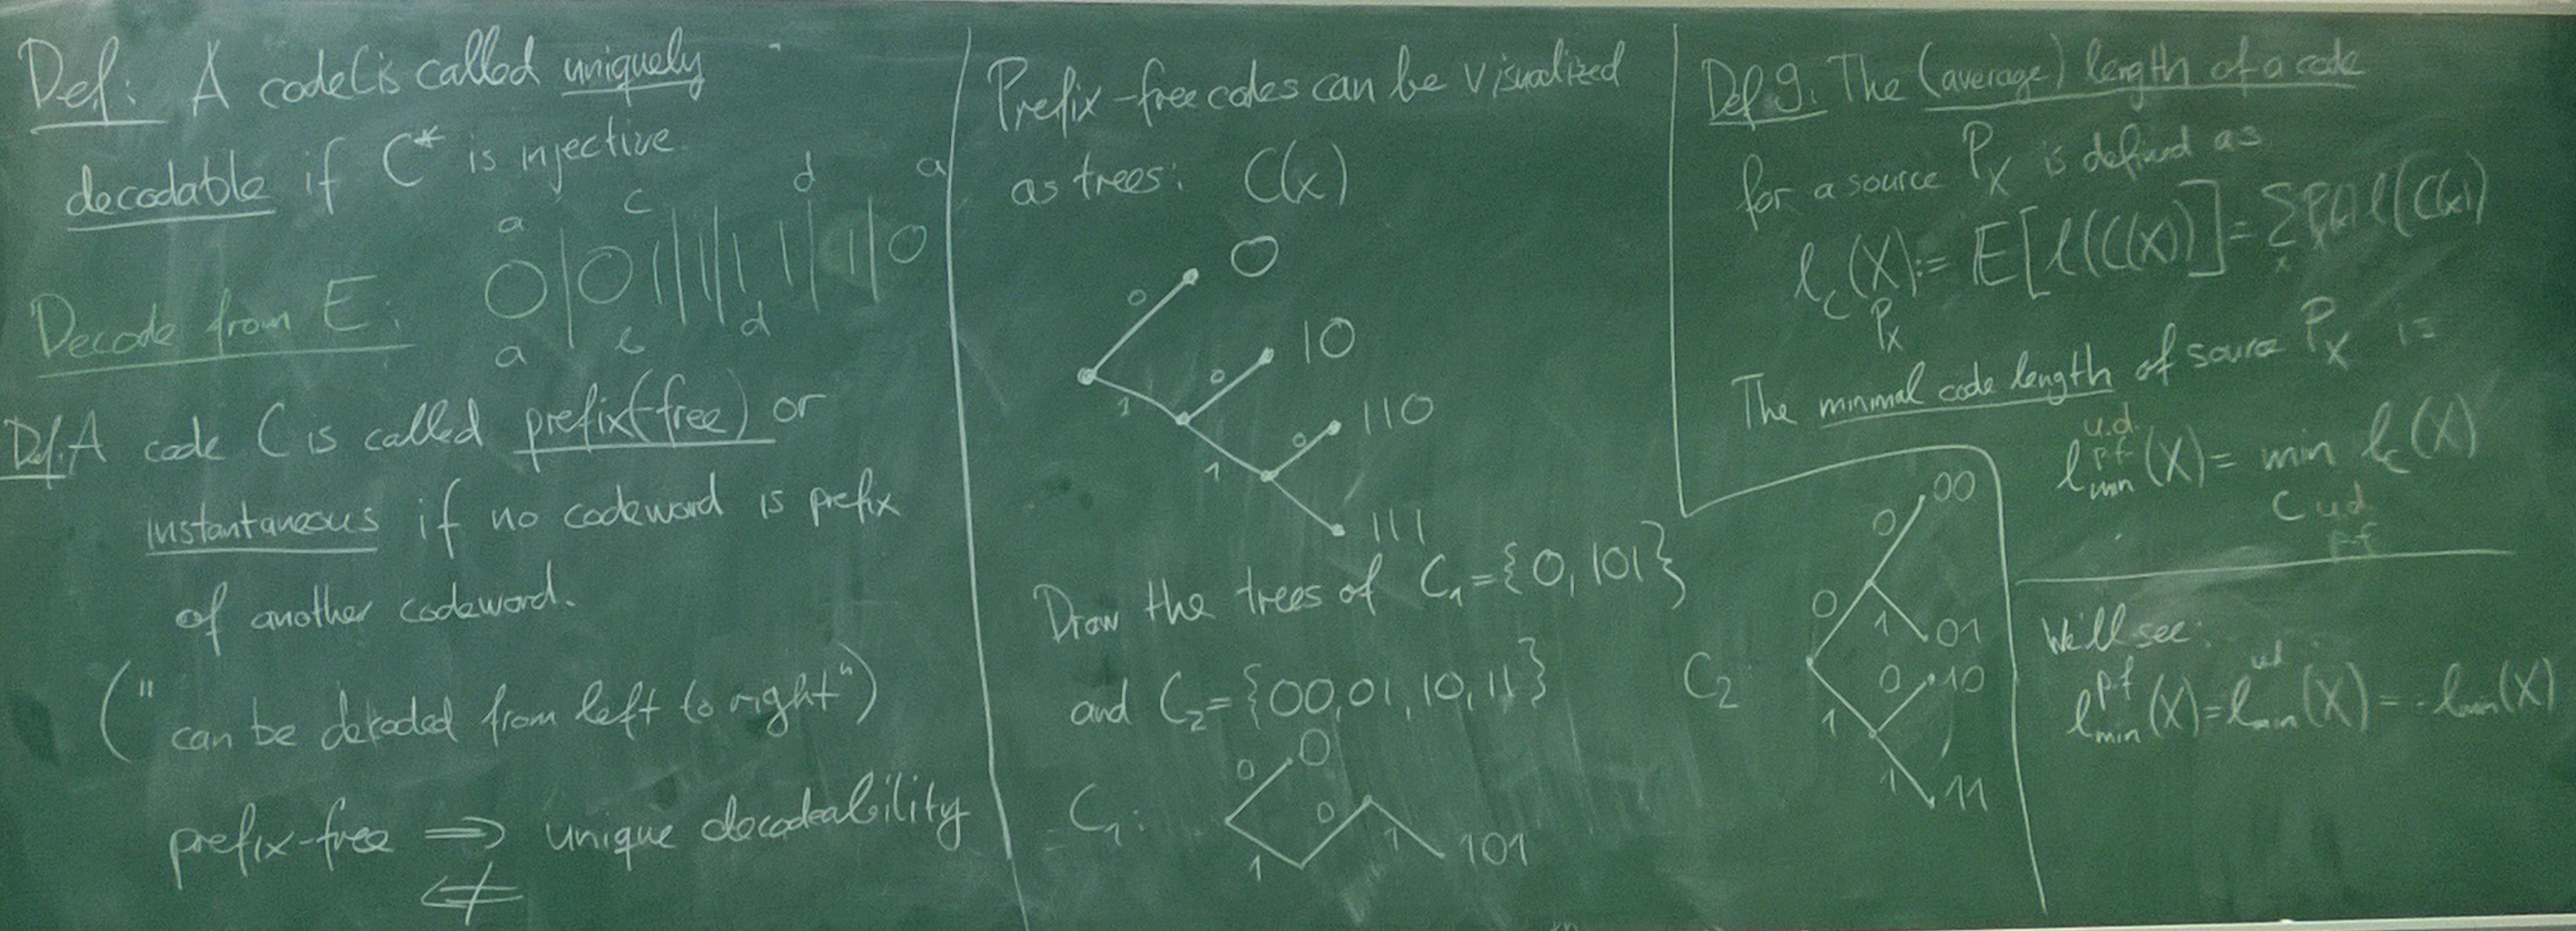 Def: A code C is called uniquely
decodable if C* is injective.
a c d a
Decode from E: 0|01||1|11|1|0
a b d
Def. A code C is called prefix(-free) or
instantaneous if no codeword is prefix
of another codeword.
("can be decoded from left to right")
prefix-free ⇒ unique decodeability
⇍
Prefix-free codes can be visualized
as trees: C(x)
0 0
0 10
1
0 110
1
111
Draw the trees of C₁={0, 101}
and C₂={00, 01, 10, 11}
C₁:
0 0
0
1 1 101
Def 9. The (average) length of a code
for a source P_X is defined as
ℓ_C(X) := E[ℓ(C(X))] = Σ_x P(x) ℓ(C(x))
P_X
The minimal code length of source P_X is
u.d.
ℓ_min^pf (X) = min ℓ_C(X)
C u.d.
pf
C₂:
0 00
0
1 01
0 10
1
1 11
We'll see:
ℓ_min^pf (X) = ℓ_min^ud (X) = ℓ_min (X)